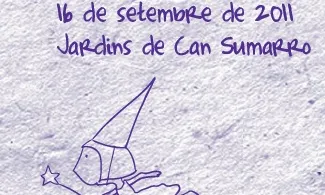 16 de setembre de 2011
Jardins de Can Sumarro